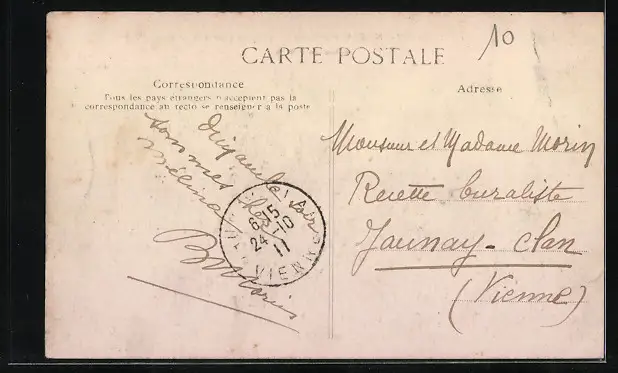 10
CARTE POSTALE
Correspondance
Tous les pays étrangers n'acceptent pas la
correspondance au recto se renseigner à la poste
Adresse
sommes
Monsieur et Madame Morin
Recette buraliste
Jaunay-Clan
(Vienne)
6-15
24-10
11
VIENNE